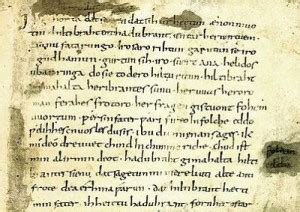 gihorta ðat seggen ðat sih urhettun ænon muo
tin · hiltibraht enti haðubrant · untar heriun tuem ·
sunufatarungo · iro saro rihtun garutun se iro
guðhamun · gurtun sih · iro · suert ana · helidos
ubar ringa do sie to dero hiltu ritun · hiltibraht
gimahalta heribrantes sunu · her uuas heroro
man ferahes frotoro · her fragen gistuont fohem
uuortum · ƿer sin fater ƿari fireo in folche eddo
ƿelihhes cnuosles du sis · ibu du mi ęnan sages · ik
mi deodre uuet chind in chunincriche · chud ist
min al irmindeot · hadubraht gimahalta hilti
brantes sunu dat sagetun mi usere liuti alte anti
frote dea erhina ƿarun · dat hiltibrant hætti
min fater · ih heittu hadubrant